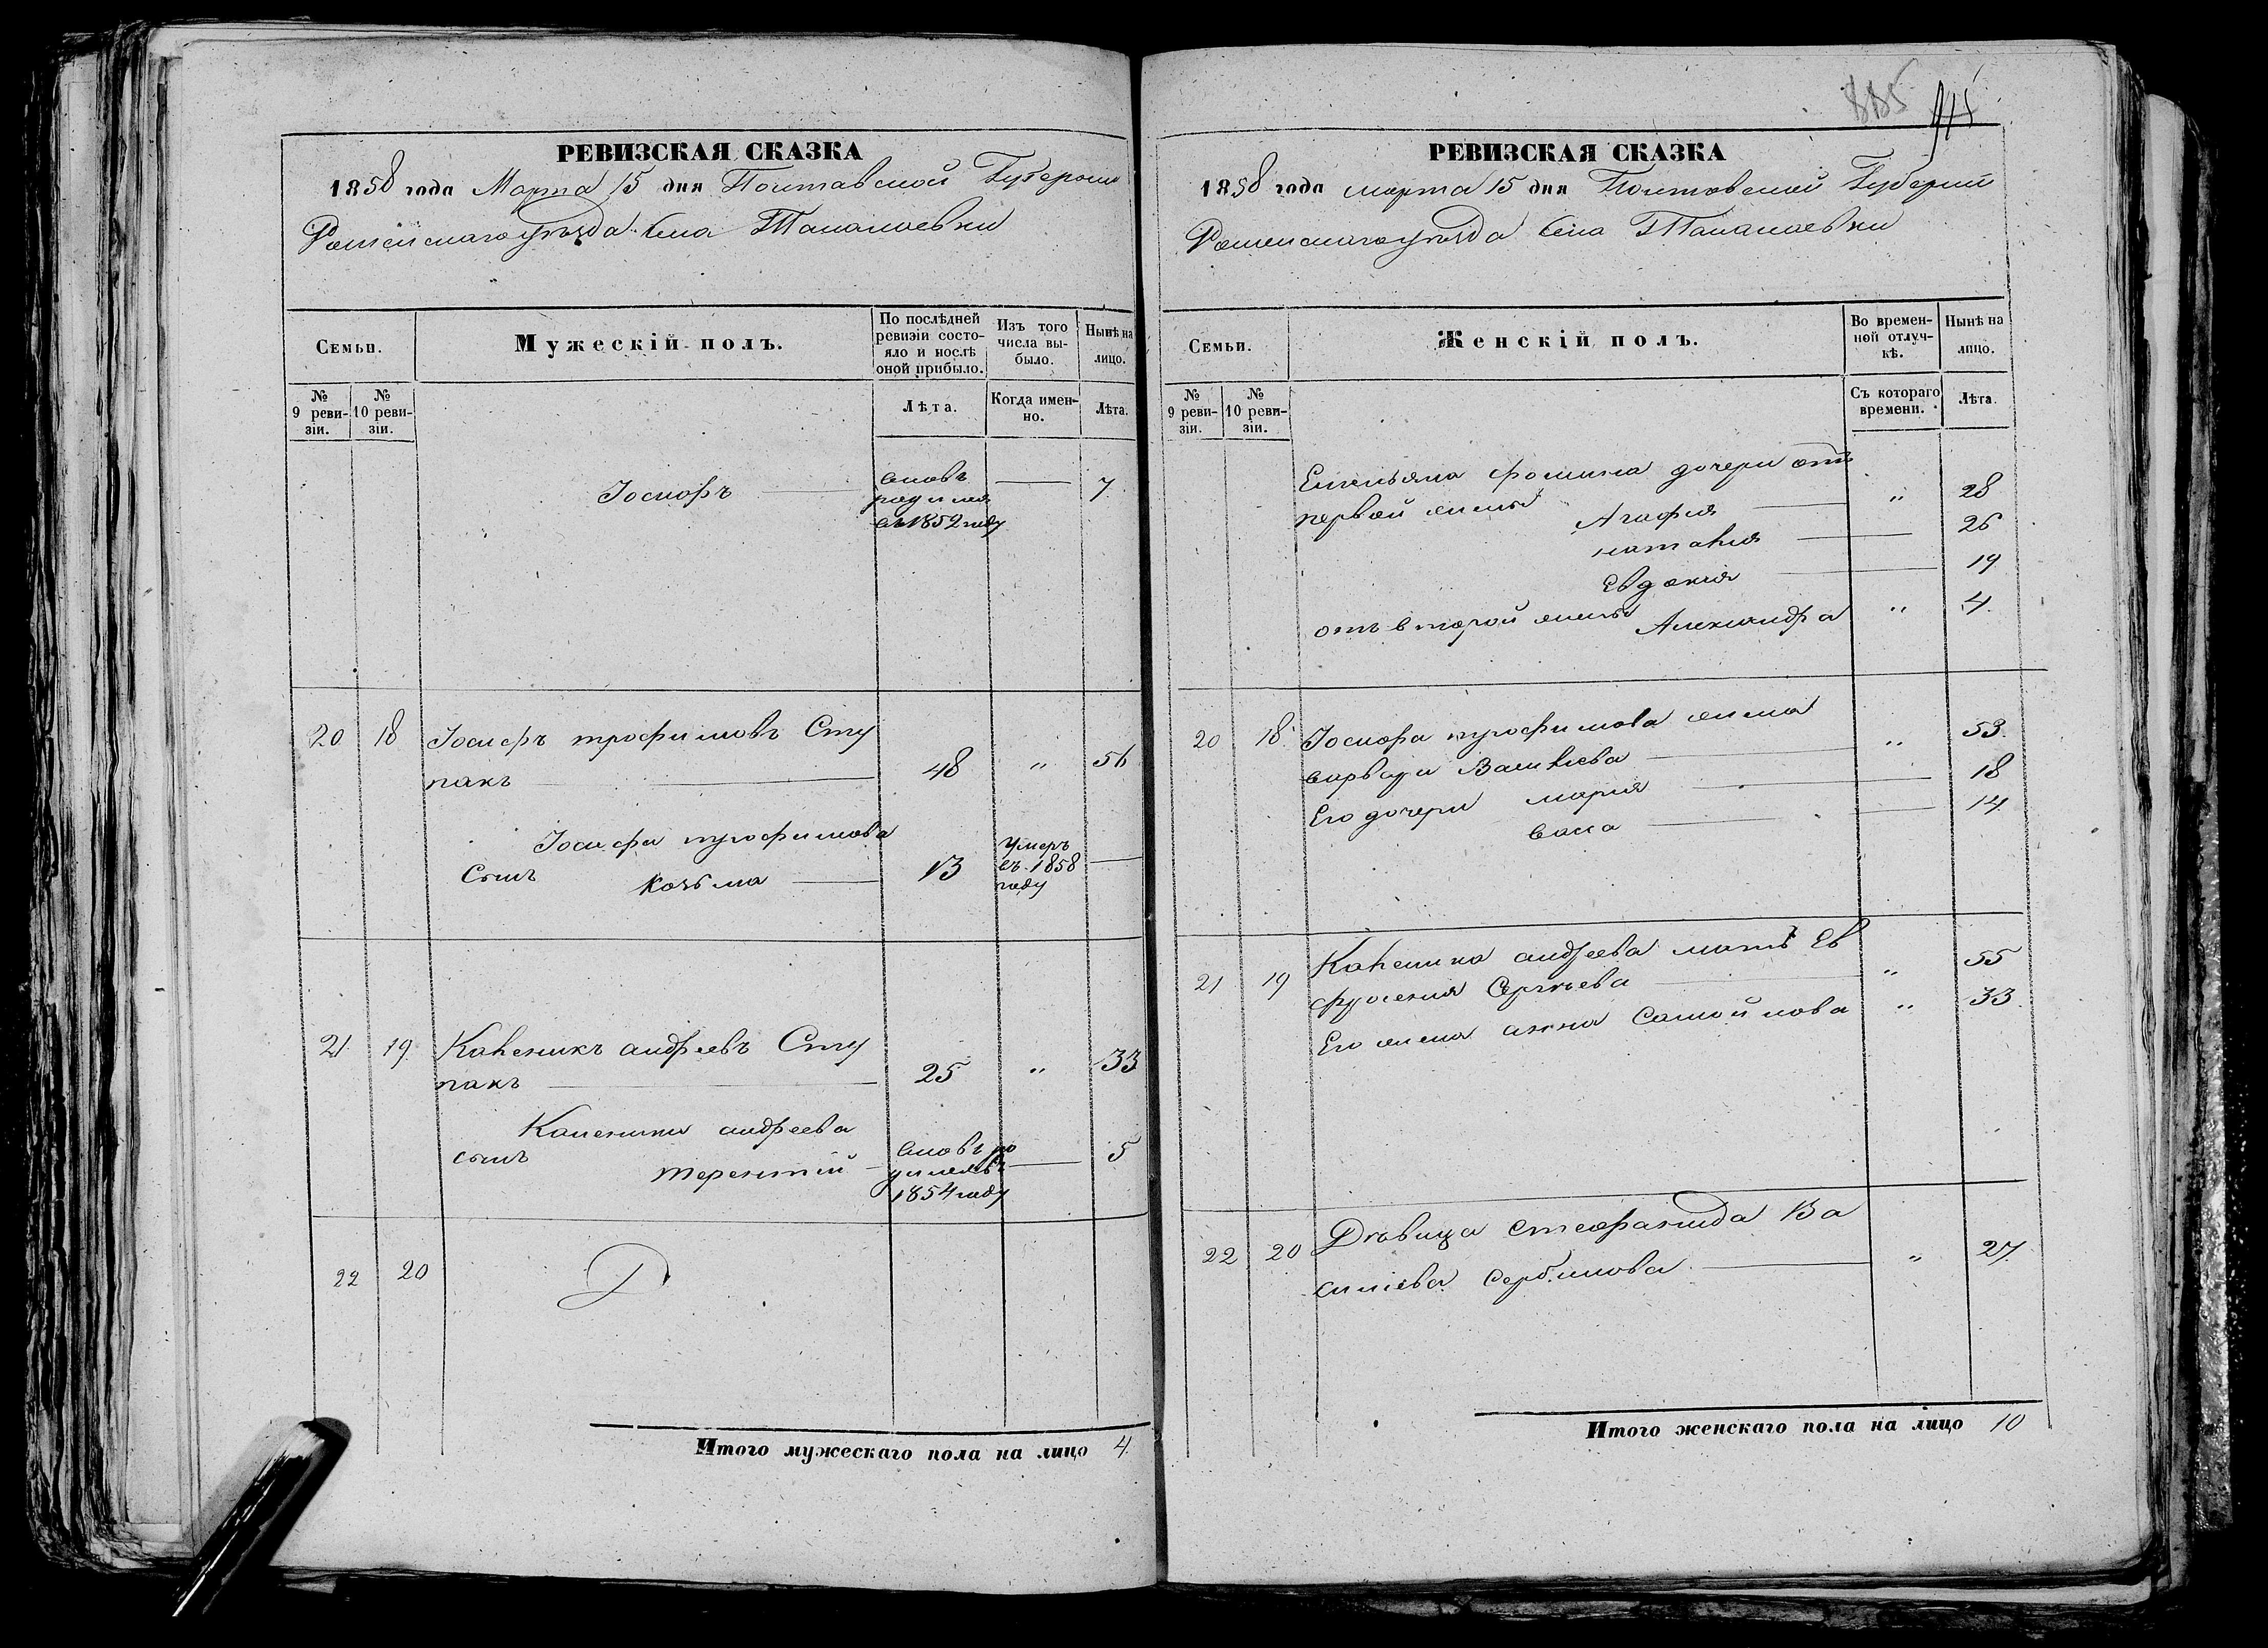 РЕВИЗСКАЯ СКАЗКА
1858 года Марта 15 дня Полтавской Губернии
Роменскаго уѣзда Села Талалаевки
Семьи.
Мужескій полъ.
По послѣдней ревизіи состояло и послѣ оной прибыло.
Изъ того числа выбыло.
Нынѣ на лицо.
№ 9 ревизіи.
№ 10 ревизіи.
Лѣта.
Когда именно.
Лѣта.
Іосифъ
вновь
родился
въ 1852 году
7
20 18 Іосифъ трофимовъ Сту
пакъ 48 " 56
Іосифа трофимова
Сынъ козьма 13
Умеръ
въ 1858
году
21 19 Каленикъ андреевъ Сту
пакъ 25 " 33
Каленика андреева
сынъ терентій
вновь ро
дился въ
1854 году
5
22 20
Итого мужескаго пола на лицо 4.
885
РЕВИЗСКАЯ СКАЗКА
1858 года марта 15 дня Полтавской Губерніи
Роменскаго уѣзда Села Талалаевки
Семьи.
Женскій полъ.
Во временной отлучкѣ.
Нынѣ на лицо.
№ 9 ревизіи.
№ 10 ревизіи.
Съ котораго времени.
Лѣта.
Емельяна фомина дочери отъ
первой жены Агафия " 28
наталия 26
Евдокия 19
отъ второй жены Александра " 4.
20 18. Іосифа трофимова жена
варвара Василиева " 53.
Его дочери мария 18
васса 14
21 19 Каленика андреева мать Ев
фросения Сергѣева " 55
Его жена анна Самойлова " 33.
22 20 Дѣвица стефанида Ва
силиева Сербинова " 27.
Итого женскаго пола на лицо 10